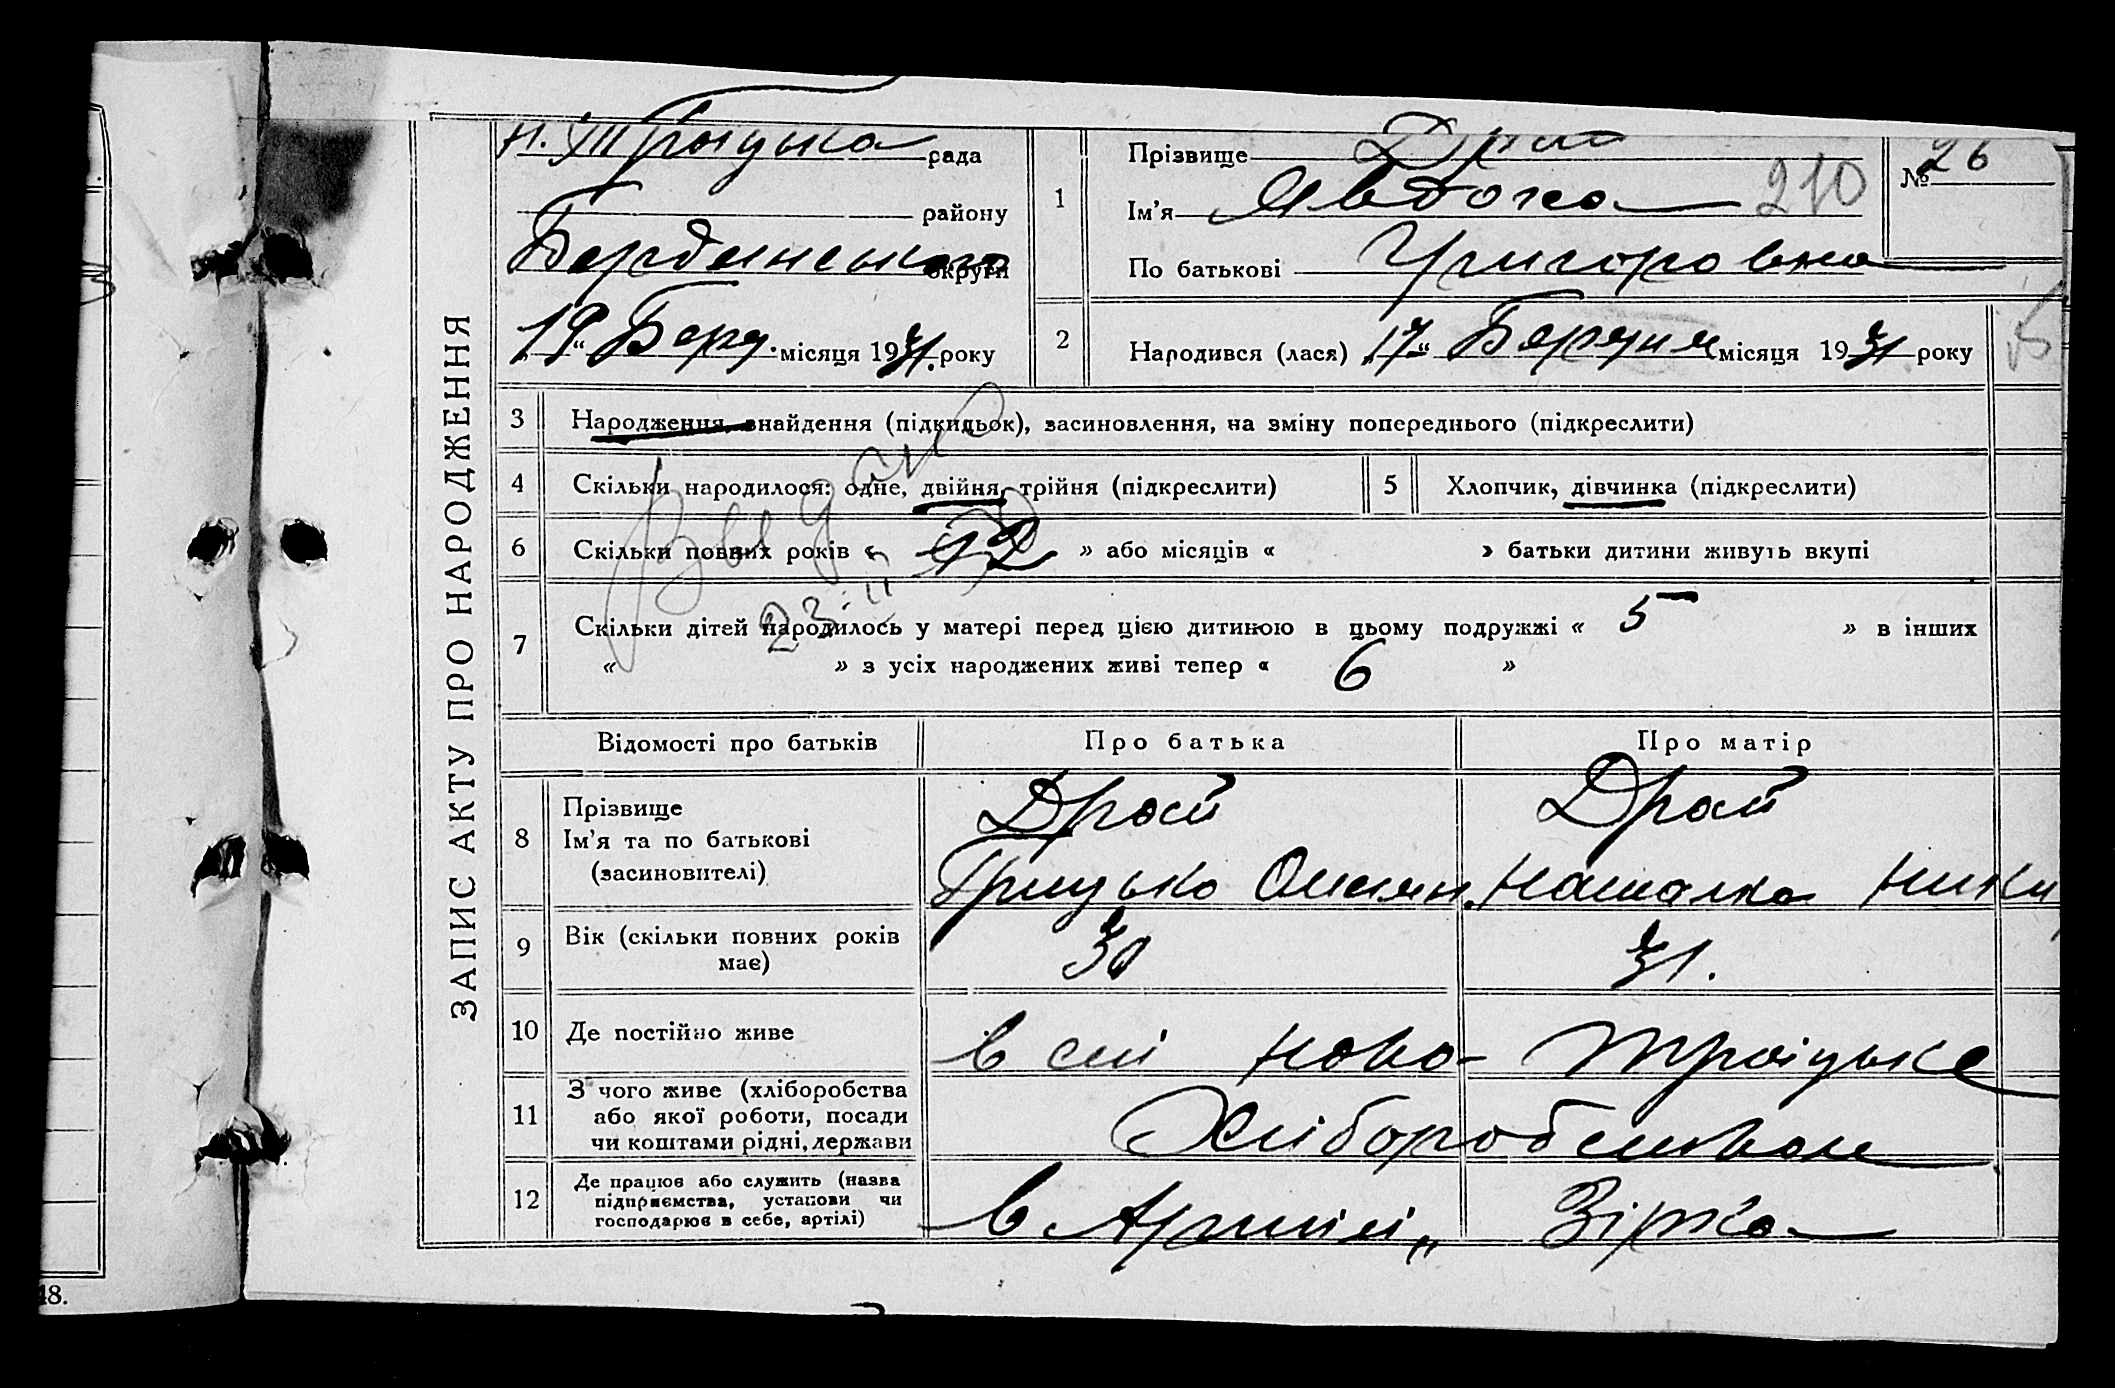 ЗАПИС АКТУ ПРО НАРОДЖЕННЯ
Н. Троїцька рада
району
Бердянського округи
19 « Берз. місяця 1931. року
1
Прізвище Драй
Ім'я Явдоха 210
По батькові Григоровна
№ 26
2
Народився (лася) 17 « Березня місяця 1931 року
3 Народження, знайдення (підкидьок), засиновлення, на зміну попереднього (підкреслити)
4 Скільки народилося: одне, двійня, трійня (підкреслити)
5 Хлопчик, дівчинка (підкреслити)
6 Скільки повних років « 12 » або місяців « » батьки дитини живуть вкупі
Выдано
23
7 Скільки дітей народилось у матері перед цією дитиною в цьому подружжі « 5 » в інших
« » з усіх народжених живі тепер « 6 »
Відомості про батьків Про батька Про матір
8 Прізвище
Ім'я та по батькові
(засиновителі)
Драй
Грицько
Драй
Наталка Ники
9 Вік (скільки повних років
має)
30 31.
10 Де постійно живе в селі Ново-Троїцьке
11 З чого живе (хліборобства
або якої роботи, посади
чи коштами рідні, держави
Хліборобством
12 Де працює або служить (назва
підприємства, установи чи
господарює в себе, артілі)
в Артілі „ Зірка
48.